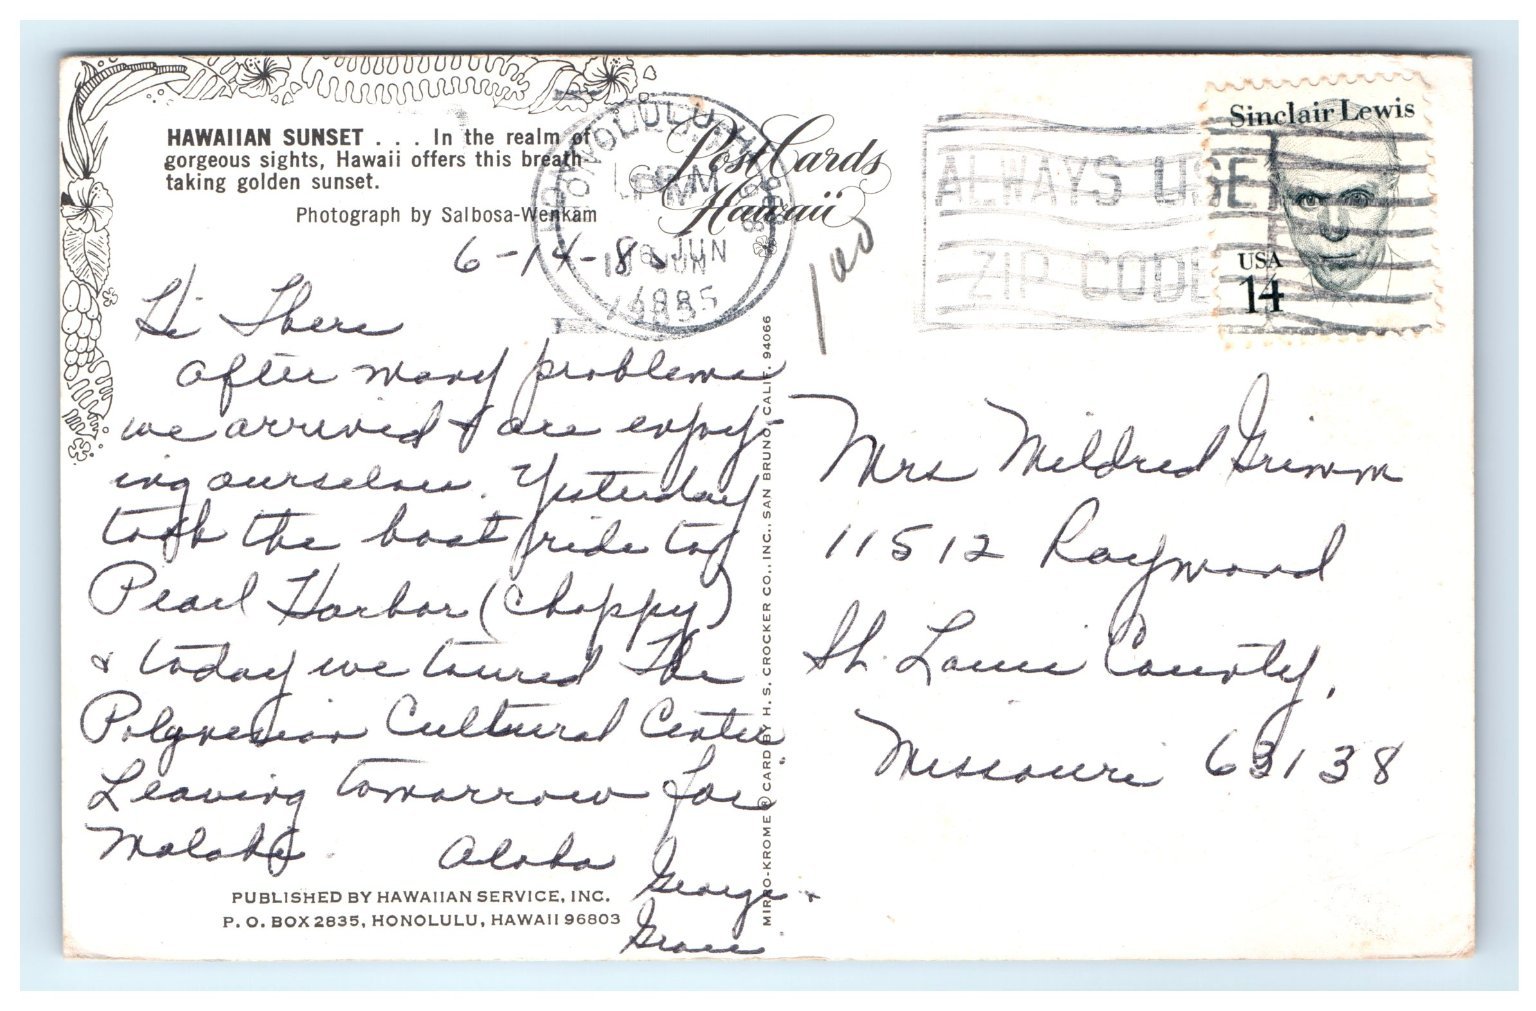 HAWAIIAN SUNSET . . . In the realm of
gorgeous sights, Hawaii offers this breath-
taking golden sunset.
Photograph by Salbosa-Wenkam
Post Cards
Hawaii
HONOLULU, HI
PM
JUN
1985
ALWAYS USE
ZIP CODE
Sinclair Lewis
USA
14
6-14-85
100
Hi There
After many problems
we arrived & are enjoy-
ing ourselves. Yesterday
took the boat ride to
Pearl Harbor (choppy)
& today we toured The
Polynesian Cultural Center
Leaving tomorrow for
Molokai. Aloha
George &
Grace
Mrs Mildred Grimm
11512 Raymond
St. Louis County,
Missouri 63138
MIRRO-KROME ® CARD BY H. S. CROCKER CO., INC., SAN BRUNO, CALIF. 94066
PUBLISHED BY HAWAIIAN SERVICE, INC.
P. O. BOX 2835, HONOLULU, HAWAII 96803